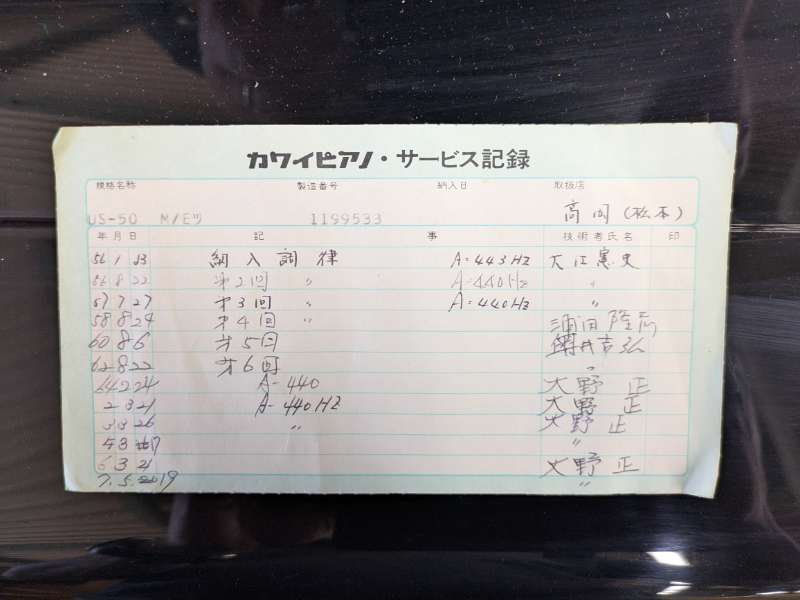 カワイピアノ・サービス記録
規格名称 製造番号 納入日 取扱店
US-50 M/Eツ 1199533 高岡(松本)
年月日 記事 技術者氏名 印
56 1 23 納入調律 A=443HZ 大江憲史
56 8 22 第2回 〃 A=440Hz 〃
57 7 27 第3回 〃 A=440Hz 〃
58 8 24 第4回 〃
60 8 6 第5回
62 8 22 第6回 〃
64 2 24 A-440 大野 正
2 3 21 A-440HZ 大野 正
3 3 26 〃 大野 正
5 3 〃
6 3 2 大野 正
7.5. 19 〃